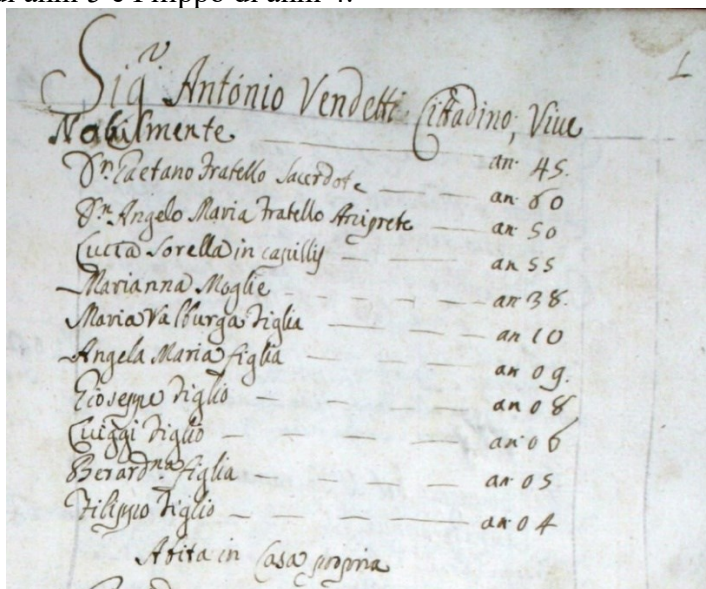 di anni 5 e Filippo di anni 4.
L
Sig.r Antonio Vendetti Cittadino, Vive
Nobilmente an: 45.
D.n Gaetano Fratello Sacerdote an: 60
D.n Angelo Maria Fratello Arciprete an: 50
Lucia Sorella in capillis an: 55
Marianna Moglie an: 38.
Maria Valburga Figlia an: 10
Angela Maria figlia an: 09.
Gioseppe Figlio an: 08
Luiggi Figlio an: 06
Berard.na figlia an: 05
Filippo Figlio an: 04
Abita in Casa propria